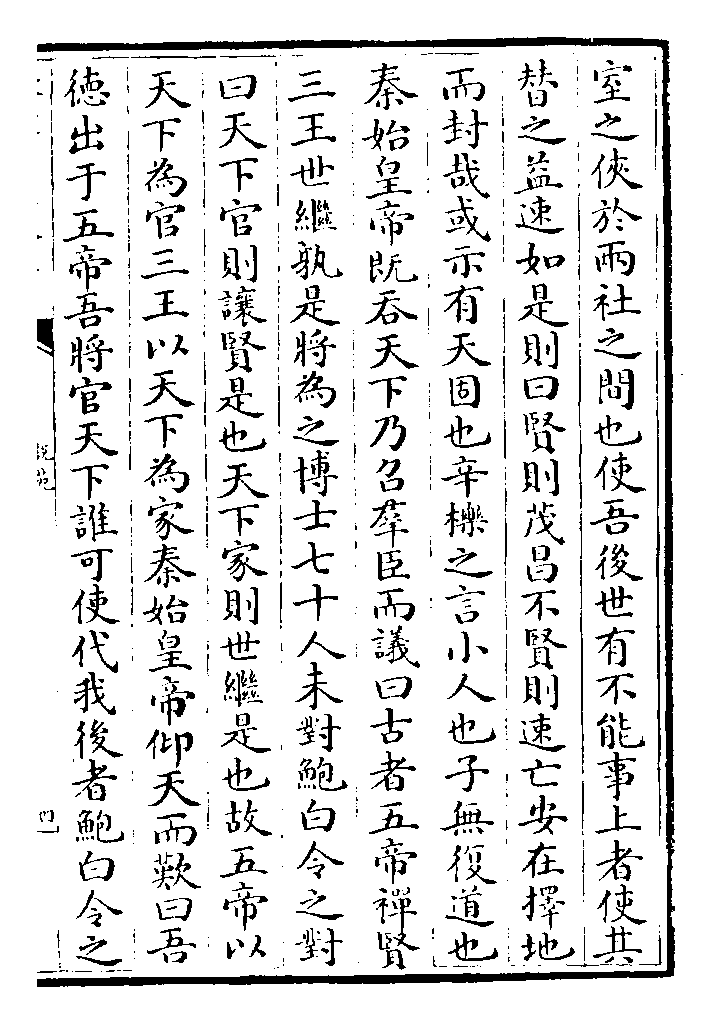 室之俠於兩社之間也使吾後世有不能事上者使其
替之益速如是則曰賢則茂昌不賢則速亡安在擇地
而封哉或示有天固也辛櫟之言小人也子無復道也
秦始皇帝既吞天下乃召羣臣而議曰古者五帝禪賢
三王世繼孰是將為之博士七十人未對鮑白令之對
曰天下官則讓賢是也天下家則世繼是也故五帝以
天下為官三王以天下為家秦始皇帝仰天而歎曰吾
德出于五帝吾將官天下誰可使代我後者鮑白令之
說苑